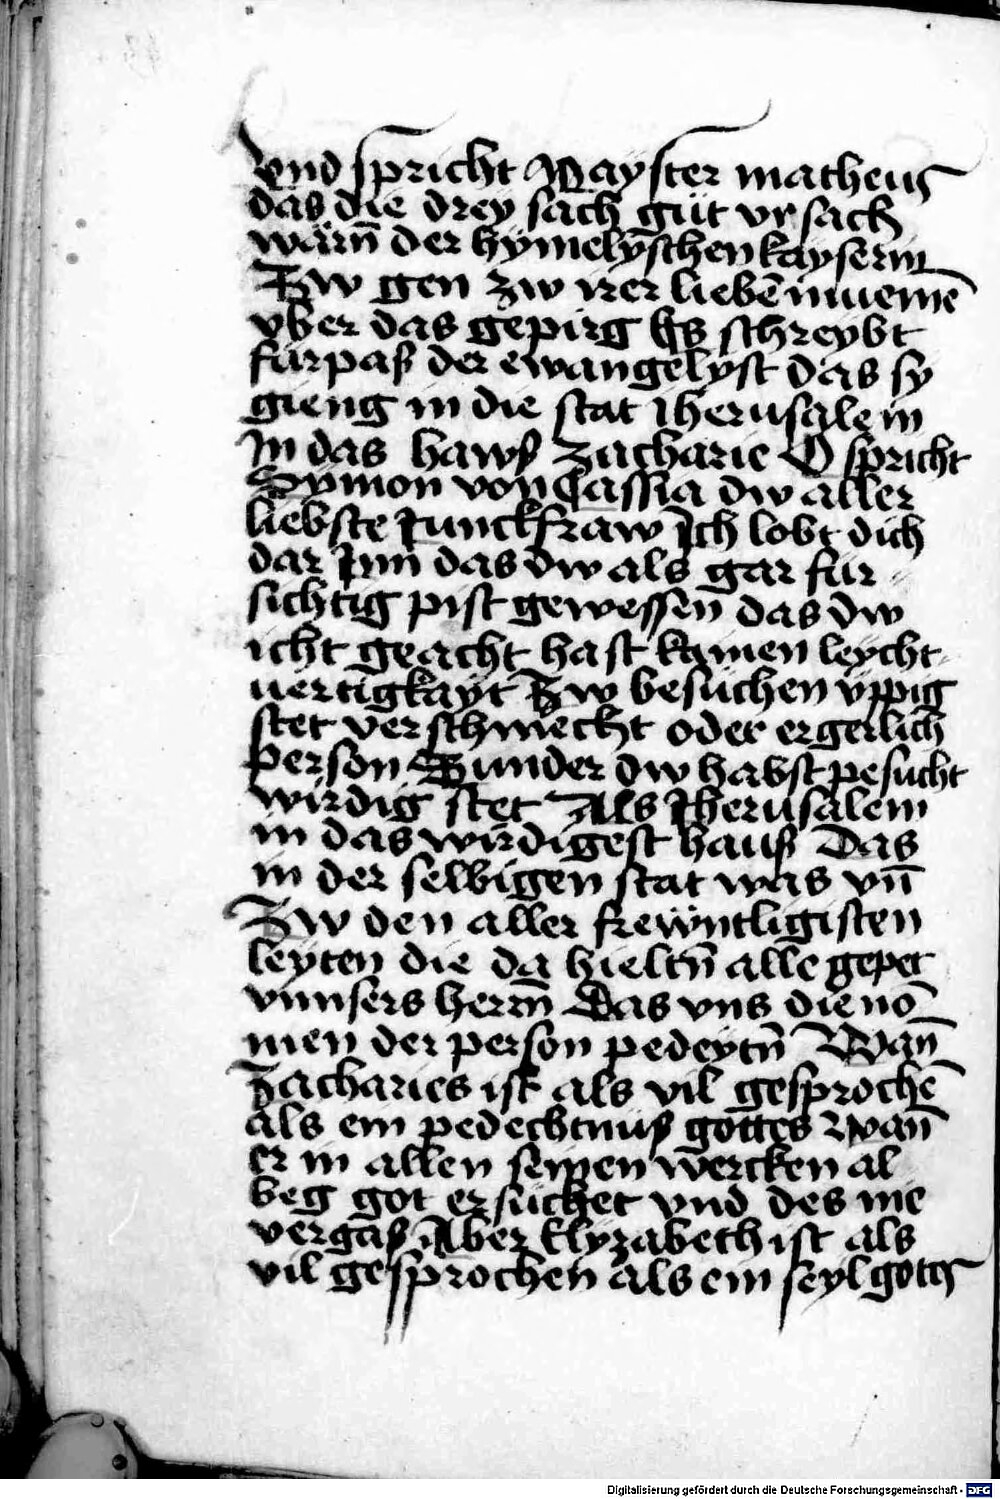 Vnd spricht Mayster matheus
das die drey sach güt vrsach
warn̄ der hymelyschen kayserin
Zw gen zw irer liebē muemē
vber das gepirg Es schreybt
fürpaß der ewangelyst das sy
gieng in die stat Jherusalem
In das hawß zacharie O spricht
Symon von Cassia dw aller
liebste Junckfraw Ich lobt dich
dar Jnn das dw als gar für
sichtig pist gewessen das dw
icht geacht hast kainen leycht
uertigkayt Zw besuchen üppig
stet verschmecht oder ergerlich
person Sunder dw habst pesucht
wirdig stet Als Jherusalem
in das wirdigest hauß Das
in der selbigen stat was vn̄
Zw den aller frewntligisten
leyten die da hieltn̄ alle gepet
vnnsers herrn̄ Das vns die nō
men der person pedeytn̄ Wan̄
Zacharies ist als vil gesprochē
als ein pedechtnüß gottes wan̄
er in allen seinen wercken al
beg got ersüchet vnd des nie
vergaß Aber Elyzabeth ist als
vil gesprochen als ein seyl gottes
Digitalisierung gefördert durch die Deutsche Forschungsgemeinschaft - DFG